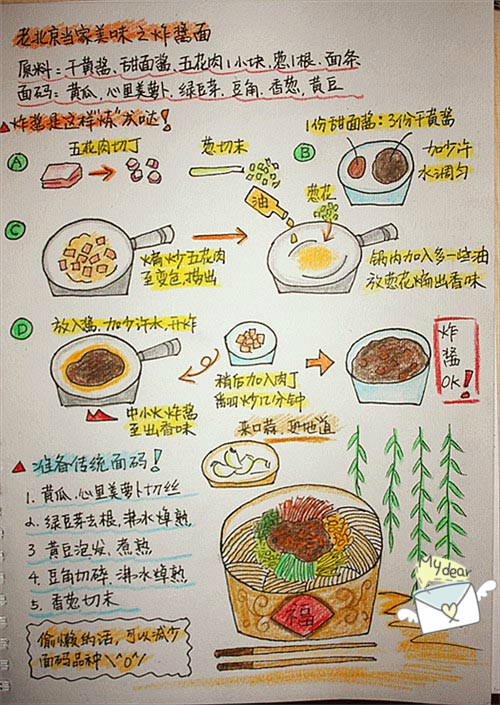 老北京当家美味之炸酱面
原料：干黄酱、甜面酱、五花肉1小块、葱1根、面条
面码：黄瓜、心里美萝卜、绿豆芽、豆角、香葱、黄豆
炸酱是这样"炼"成哒！
1份甜面酱：3份干黄酱
A 五花肉切丁 葱切末
B 加少许
水调匀
油 葱花
C 煸炒五花肉
至变色，捞出
锅内加入多一些油
放葱花煸出香味
D 放入酱，加少许水，开炸
中小火炸酱
至出香味
稍后加入肉丁
翻炒几分钟
炸
酱
OK！
来口蒜，更地道
准备传统面码！
1. 黄瓜、心里美萝卜切丝
2. 绿豆芽去根，沸水焯熟
3 黄豆泡发，煮熟
4. 豆角切碎，沸水焯熟
5. 香葱切末
福
偷懒的话，可以减少
面码品种 \^o^/
My dear